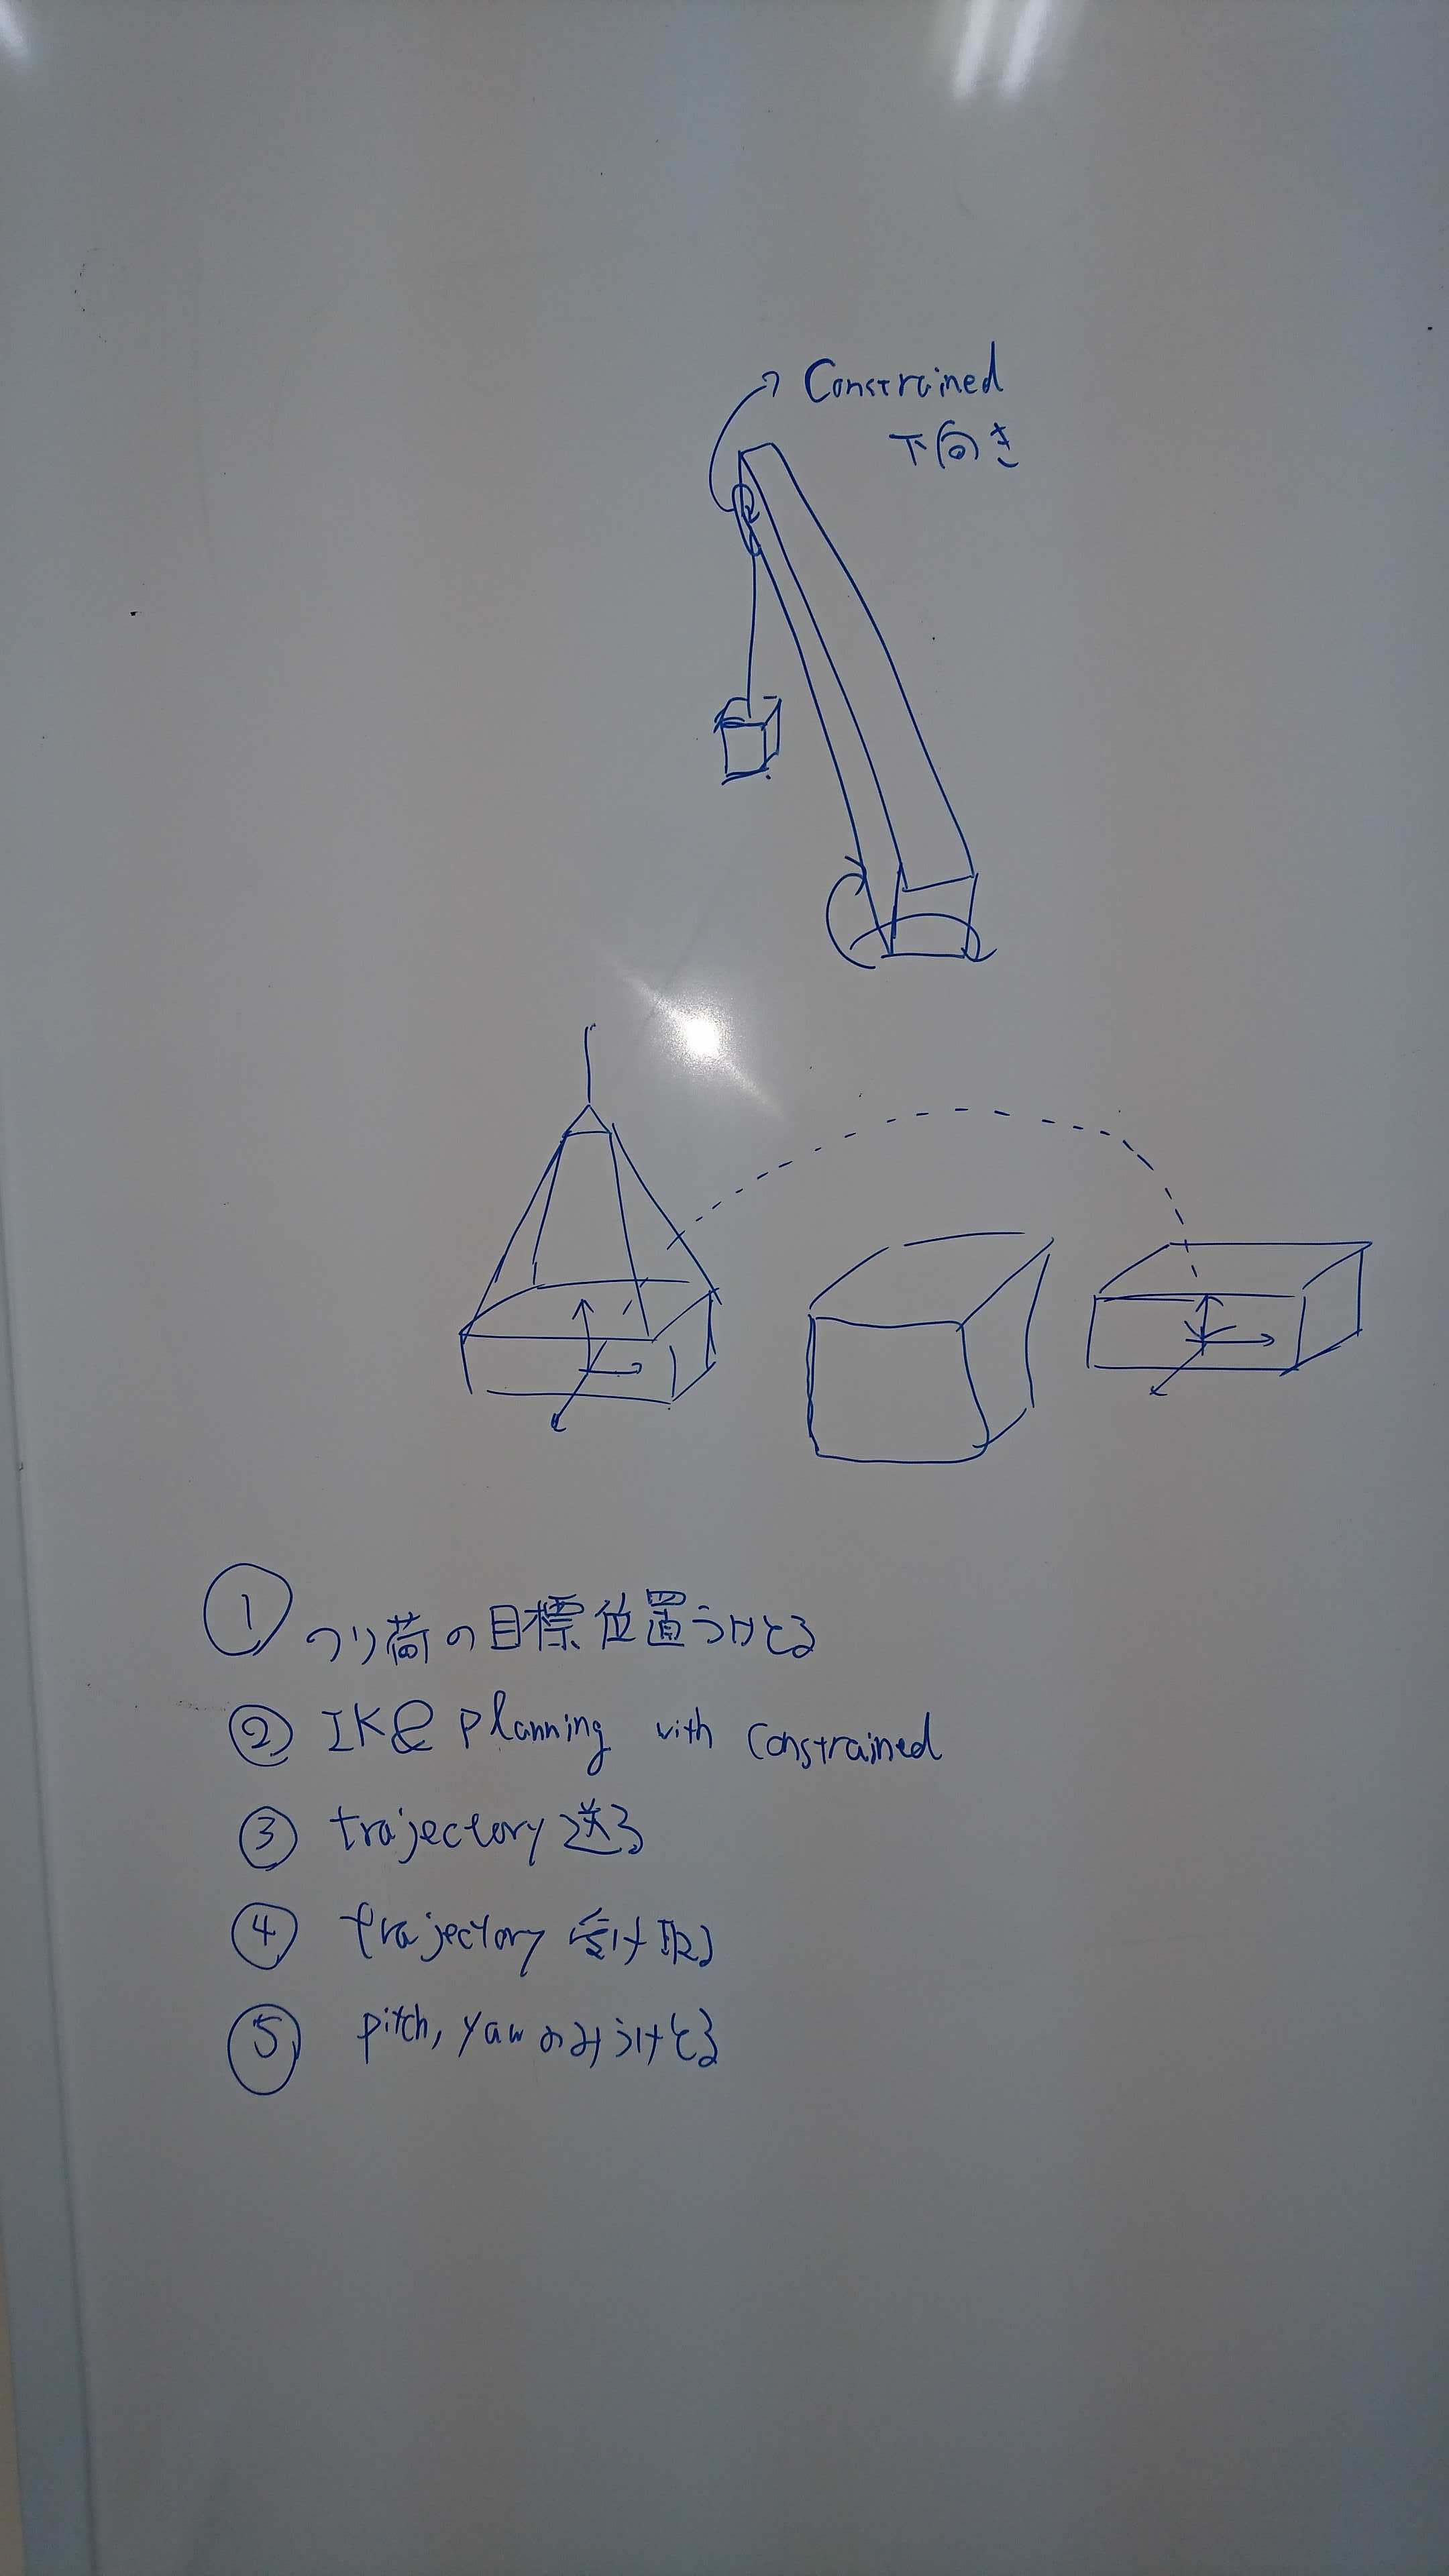 Constrained
下向き
① つり荷の目標位置うけとる
② IK& planning with Constrained
③ trajectory 送る
④ trajectory 受け取る
⑤ pitch, yaw のみうけとる